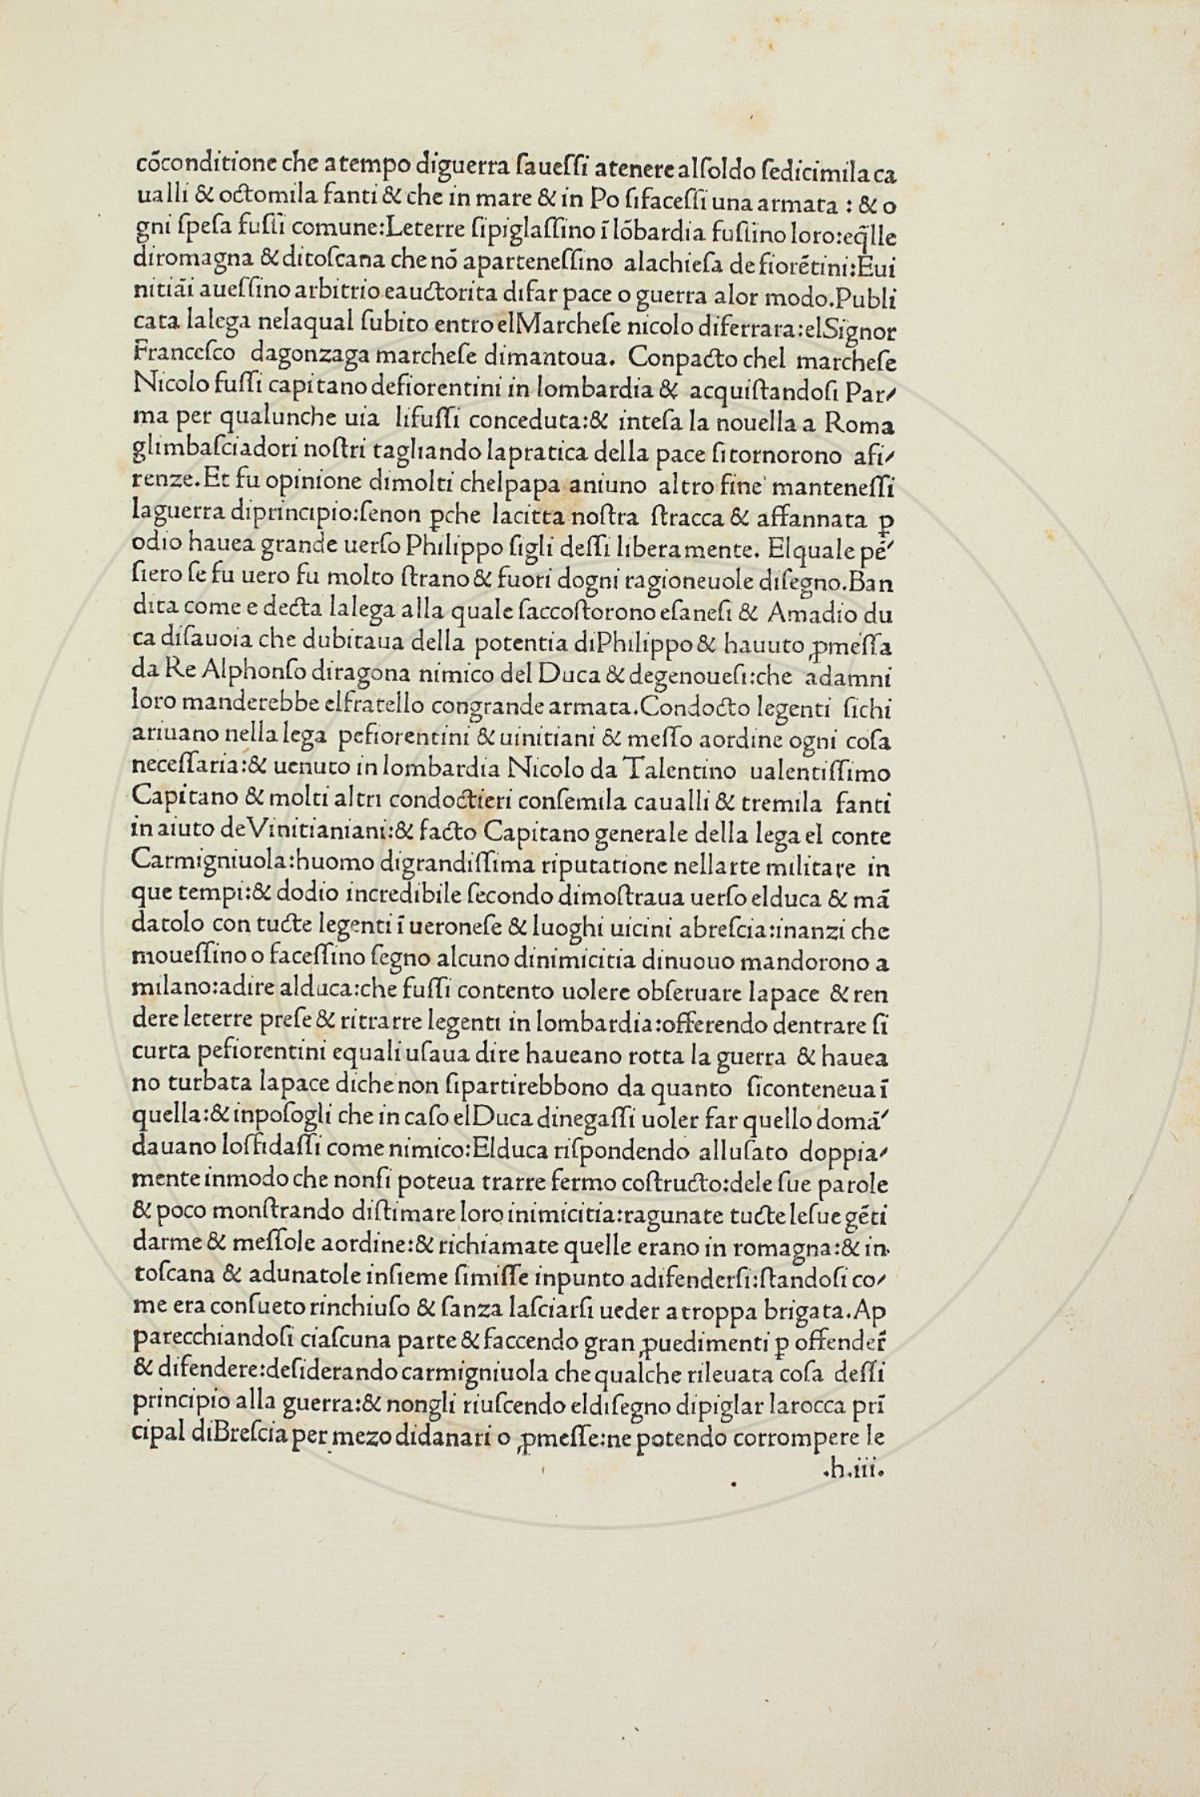 cōconditione che atempo diguerra ſaueſſi atenere alſoldo ſedicimila ca
ualli & octomila fanti & che in mare & in Po ſifaceſſi una armata : & o
gni ſpeſa fuſſi comune:Leterre ſipiglaſſino ī lōbardia fuſſino loro:eq̄lle
diromagna & ditoſcana che nō aparteneſſino alachieſa defiorētini:Eui
nitiāi aueſſino arbitrio eauctorita difar pace o guerra alor modo.Publi
cata lalega nelaqual ſubito entro elMarcheſe nicolo diferrara:elSignor
Franceſco dagonzaga marcheſe dimantoua. Conpacto chel marcheſe
Nicolo fuſſi capitano defiorentini in lombardia & acquiſtandoſi Par⸗
ma per qualunche uia lifuſſi conceduta:& inteſa la nouella a Roma
glimbaſciadori noſtri tagliando lapratica della pace ſitornorono afi⸗
renze.Et fu opinione dimolti chelpapa aniuno altro fine manteneſſi
laguerra diprincipio:ſenon ꝑche lacitta noſtra ſtracca & affannata ꝑ
odio hauea grande uerſo Philippo ſigli deſſi liberamente. Elquale pē⸗
ſiero ſe fu uero fu molto ſtrano & fuori dogni ragioneuole diſegno.Ban
dita come e decta lalega alla quale ſaccoſtorono eſaneſi & Amadio du
ca diſauoia che dubitaua della potentia diPhilippo & hauuto ꝓmeſſa
da Re Alphonſo diragona nimico del Duca & degenoueſi:che adamni
loro manderebbe elfratello congrande armata.Condocto legenti ſichi
ariuano nella lega pefiorentini & uinitiani & meſſo aordine ogni coſa
neceſſaria:& uenuto in lombardia Nicolo da Talentino ualentiſſimo
Capitano & molti altri condoctieri conſemila caualli & tremila fanti
in aiuto deVinitianiani:& facto Capitano generale della lega el conte
Carmigniuola:huomo digrandiſſima riputatione nellarte militare in
que tempi:& dodio incredibile ſecondo dimoſtraua uerſo elduca & mā
datolo con tucte legenti ī ueroneſe & luoghi uicini abreſcia:inanzi che
moueſſino o faceſſino ſegno alcuno dinimicitia dinuouo mandorono a
milano:adire alduca:che fuſſi contento uolere obſeruare lapace & ren
dere leterre preſe & ritrarre legenti in lombardia:offerendo dentrare ſi
curta pefiorentini equali uſaua dire haueano rotta la guerra & hauea
no turbata lapace diche non ſipartirebbono da quanto ſiconteneua ī
quella:& inpoſogli che in caſo elDuca dinegaſſi uoler far quello domā⸗
dauano loſfidaſſi come nimico:Elduca riſpondendo alluſato doppia⸗
mente inmodo che nonſi poteua trarre fermo coſtructo:dele ſue parole
& poco monſtrando diſtimare loro inimicitia:ragunate tucte leſue gēti
darme & meſſole aordine:& richiamate quelle erano in romagna:& in
toſcana & adunatole inſieme ſimiſſe inpunto adifenderſi:ſtandoſi co⸗
me era conſueto rinchiuſo & ſanza laſciarſi ueder a troppa brigata.Ap
parecchiandoſi ciaſcuna parte & faccendo gran ꝓuedimenti ꝑ offender̄
& difendere:deſiderando carmigniuola che qualche rileuata coſa deſſi
principio alla guerra:& nongli riuſcendo eldiſegno dipiglar larocca prī
cipal diBreſcia per mezo didanari o ꝓmeſſe:ne potendo corrompere le
.h.iii.